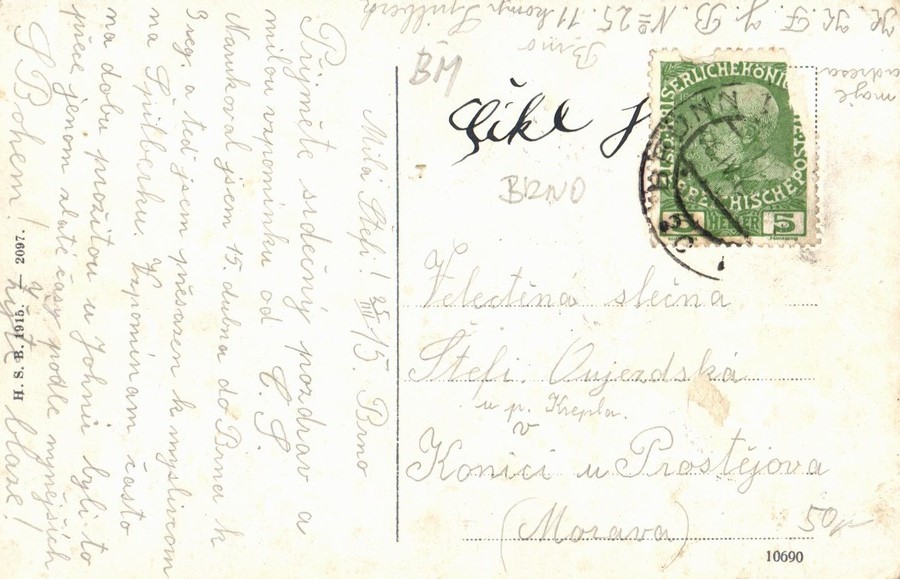 Milá Štefi! 15 Brno
Přijměte srdečný pozdrav a
milou vzpomínku od Č. S.
Narukoval jsem 15. dubna do Brna k
3 reg. a teď jsem přesazen k myslivcom
na Špilberku. Vzpomínam často
na dobu prožitou u Johnů byli to
přece jenom zlaté časy podle nynějších
S Bohem!
H. S. B. 1915. — 2097.
moje
adresa
N= 25. 11 komp. Spilberk
Brno
BM
BRNO
BRÜNN
KAISERLICHE KÖNIGLICHE
ÖSTERREICHISCHE POST
5 HELLER 5
Velectěná slečna
Štefi. Oujezdská
u p. Krepla.
v
Konici u Prostějova
(Morava)
50,-
10690